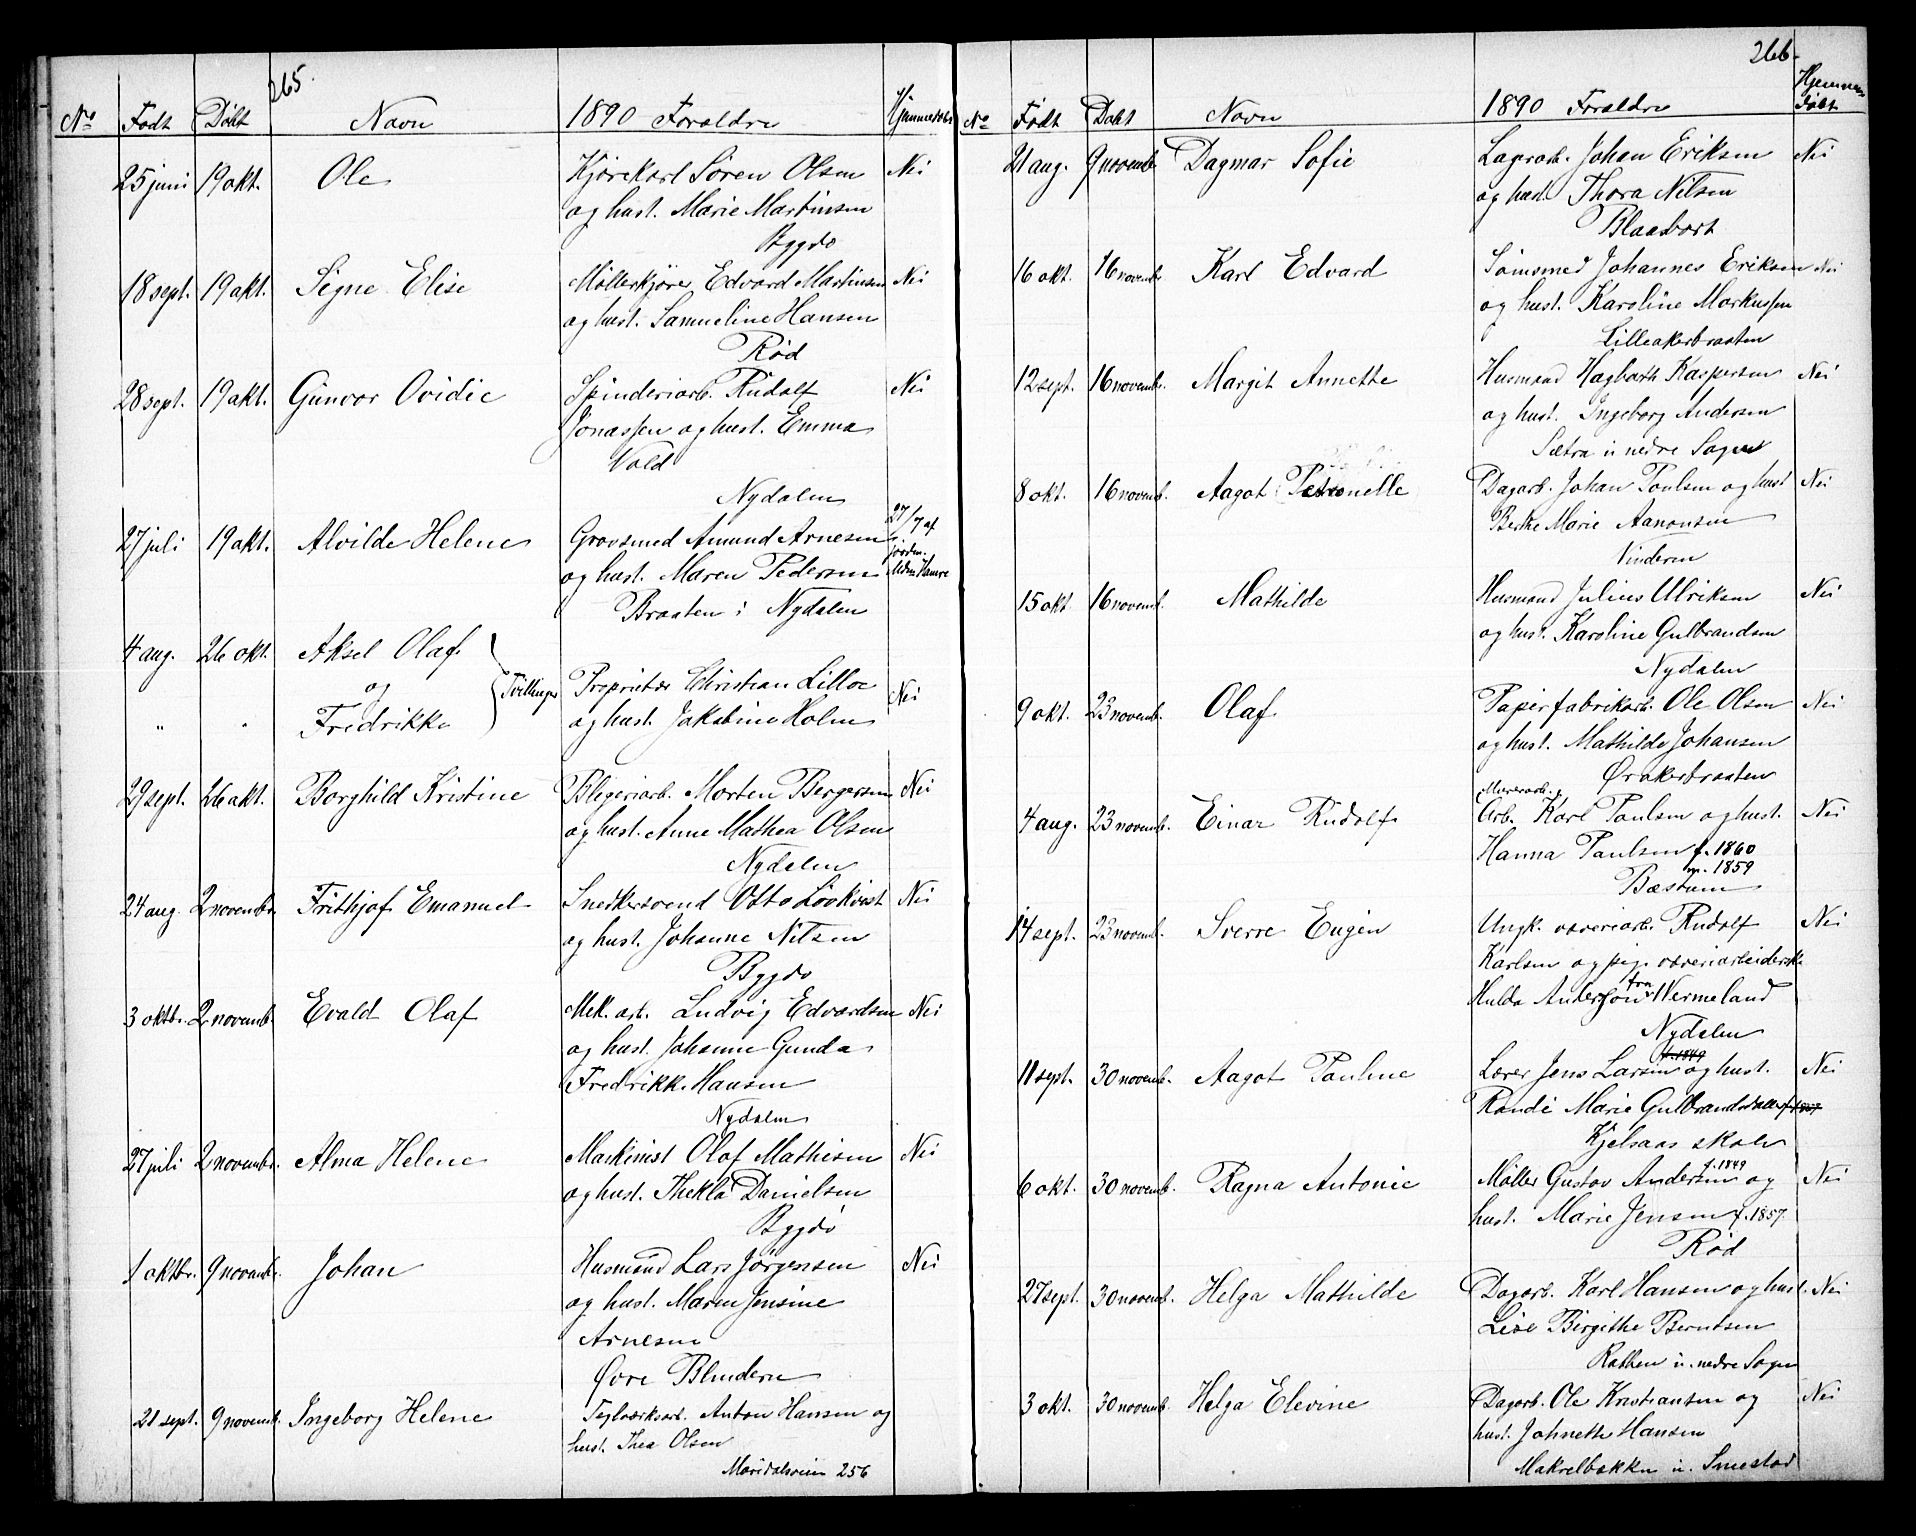 265.
No Født Døbt Navn 1890 Foreldre Hjemmedøbt
25 juni 19 okt. Ole Kjørekarl Søren Olsen Nei
og hust. Marie Martinsen
Bygdø
18 sept. 19 okt. Signe Elise Møllerkjører Edvard Martinsen Nei
og hust. Samueline Hansen
Rød
28 sept. 19 okt. Gunvor Ovidie Spinderiarb. Rudolf Nei
Jonassen og hust. Emma
Vold
Nydalen
27 juli 19 okt. Alvilde Helene Grovsmed Amund Arnesen 27/7 af
og hust. Maren Pedersen jordm.
Braaten i Nydalen
4 aug. 26 okt. Aksel Olaf
og Tvillinger Proprietær Christian Lilloe Nei
" " Fredrikke og hust. Jakobine Holm
29 sept. 26 okt. Borghild Kristine Blegeriarb. Morten Bergersen Nei
og hust. Anne Mathea Olsen
Nydalen
24 aug. 2 novembr. Frithjof Emanuel Snedkersvend Otto Lövkvist Nei
og hust. Johanne Nilsen
Bygdø
3 oktbr. 2 novemb. Evald Olaf Mek. arb. Ludvig Edvardsen Nei
og hust. Johanne Gunda
Fredrikke Hansen
Nydalen
27 juli 2 novembr. Alma Helene Maskinist Olaf Mathisen Nei
og hust. Thekla Danielsen
Bygdø
1 oktbr. 9 novembr. Johan Husmand Lars Jörgensen Nei
og hust. Maren Jensine
Arnesen
Øvre Blindern
21 sept. 9 novemb. Ingeborg Helene Teglværksarb. Anton Hansen og
hust. Thea Olsen
Maridalsveien 256
266.
No Født Døbt Navn 1890 Foreldre Hjemmedøbt
21 aug. 9 novemb. Dagmar Sofie Lagerarb. Johan Eriksen Nei
og hust. Thora Nilsen
Blaasbort
16 okt. 16 novemb. Karl Edvard Sømsmed Johannes Eriksen Nei
og hust. Karoline Markussen
Lilleakerbraaten
12 sept. 16 novemb. Margit Annette Husmand Hagbarth Kaspersen Nei
og hust. Ingeborg Andersen
Sætra u. nedre Sogn
8 okt. 16 novemb. Aagot Petronelle Dagarb. Johan Poulsen og hust Nei
Berthe Marie Aanonsen
Vinderen
15 okt 16 novemb. Mathilde Husmand Julius Ulriksen Nei
og hust. Karoline Gulbrandsen
Nydalen
9 okt. 23 novemb. Olaf Papirfabrikarb. Ole Olsen Nei
og hust. Mathilde Johansen
Ørakerbraaten
Murerarb.
4 aug. 23 novemb. Einar Rudolf Arb. Karl Paulsen og hust. Nei
Hanna Paulsen f. 1860
m. 1859
Bæstum
14 sept. 23 novemb. Sverre Eugen Ungk. væveriarb. Rudolf Nei
Karlsen og pige væveriarbeiderske
Hulda Andersson fra Wermeland
Nydalen
f. 1849
11 sept. 30 novemb. Aagot Pauline Lærer Jens Larsen og hust. Nei
Randi Marie Gulbrandsdatter f. 1857
Kjelsaas skole
6 okt. 30 novemb. Ragna Antonie Møller Gustav Andersen f. 1849 og Nei
hust. Marie Jensen f. 1857.
Rød
27 sept. 30 novemb. Helga Mathilde Dagarb. Karl Hansen og hust. Nei
Lise Birgithe Berntsen
Rothen u. nedre Sogn
3 okt. 30 novemb. Helga Elevine Dagarb. Ole Kristiansen og Nei
hust. Johnette Hansen
Makrelbækken u. Smestad